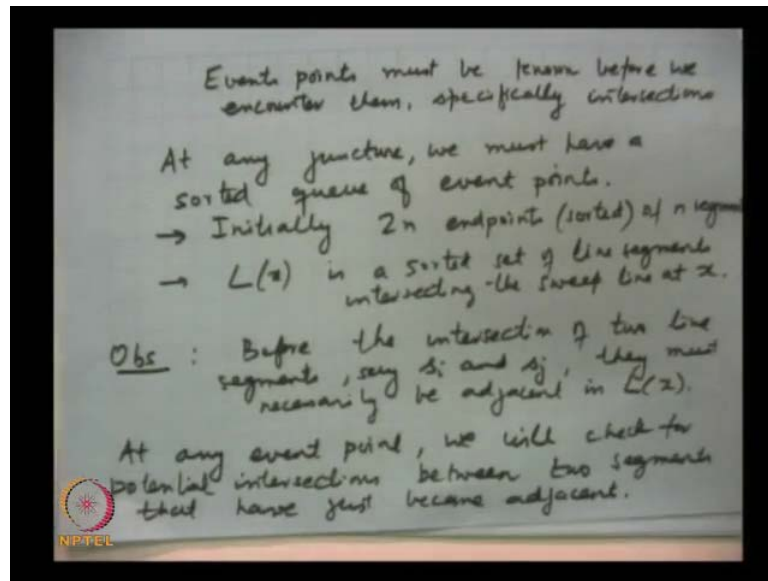 Events points must be known before we
encounter them, specifically intersections
At any juncture, we must have a
sorted queue of event points.
→ Initially 2n endpoints (sorted) of n segment
→ L(x) is a sorted set of line segments
intersecting the sweep line at x.
Obs : Before the intersection of two line
segments, say si and sj, they must
necessarily be adjacent in L(x).
At any event point, we will check for
potential intersections between two segments
that have just become adjacent.
NPTEL